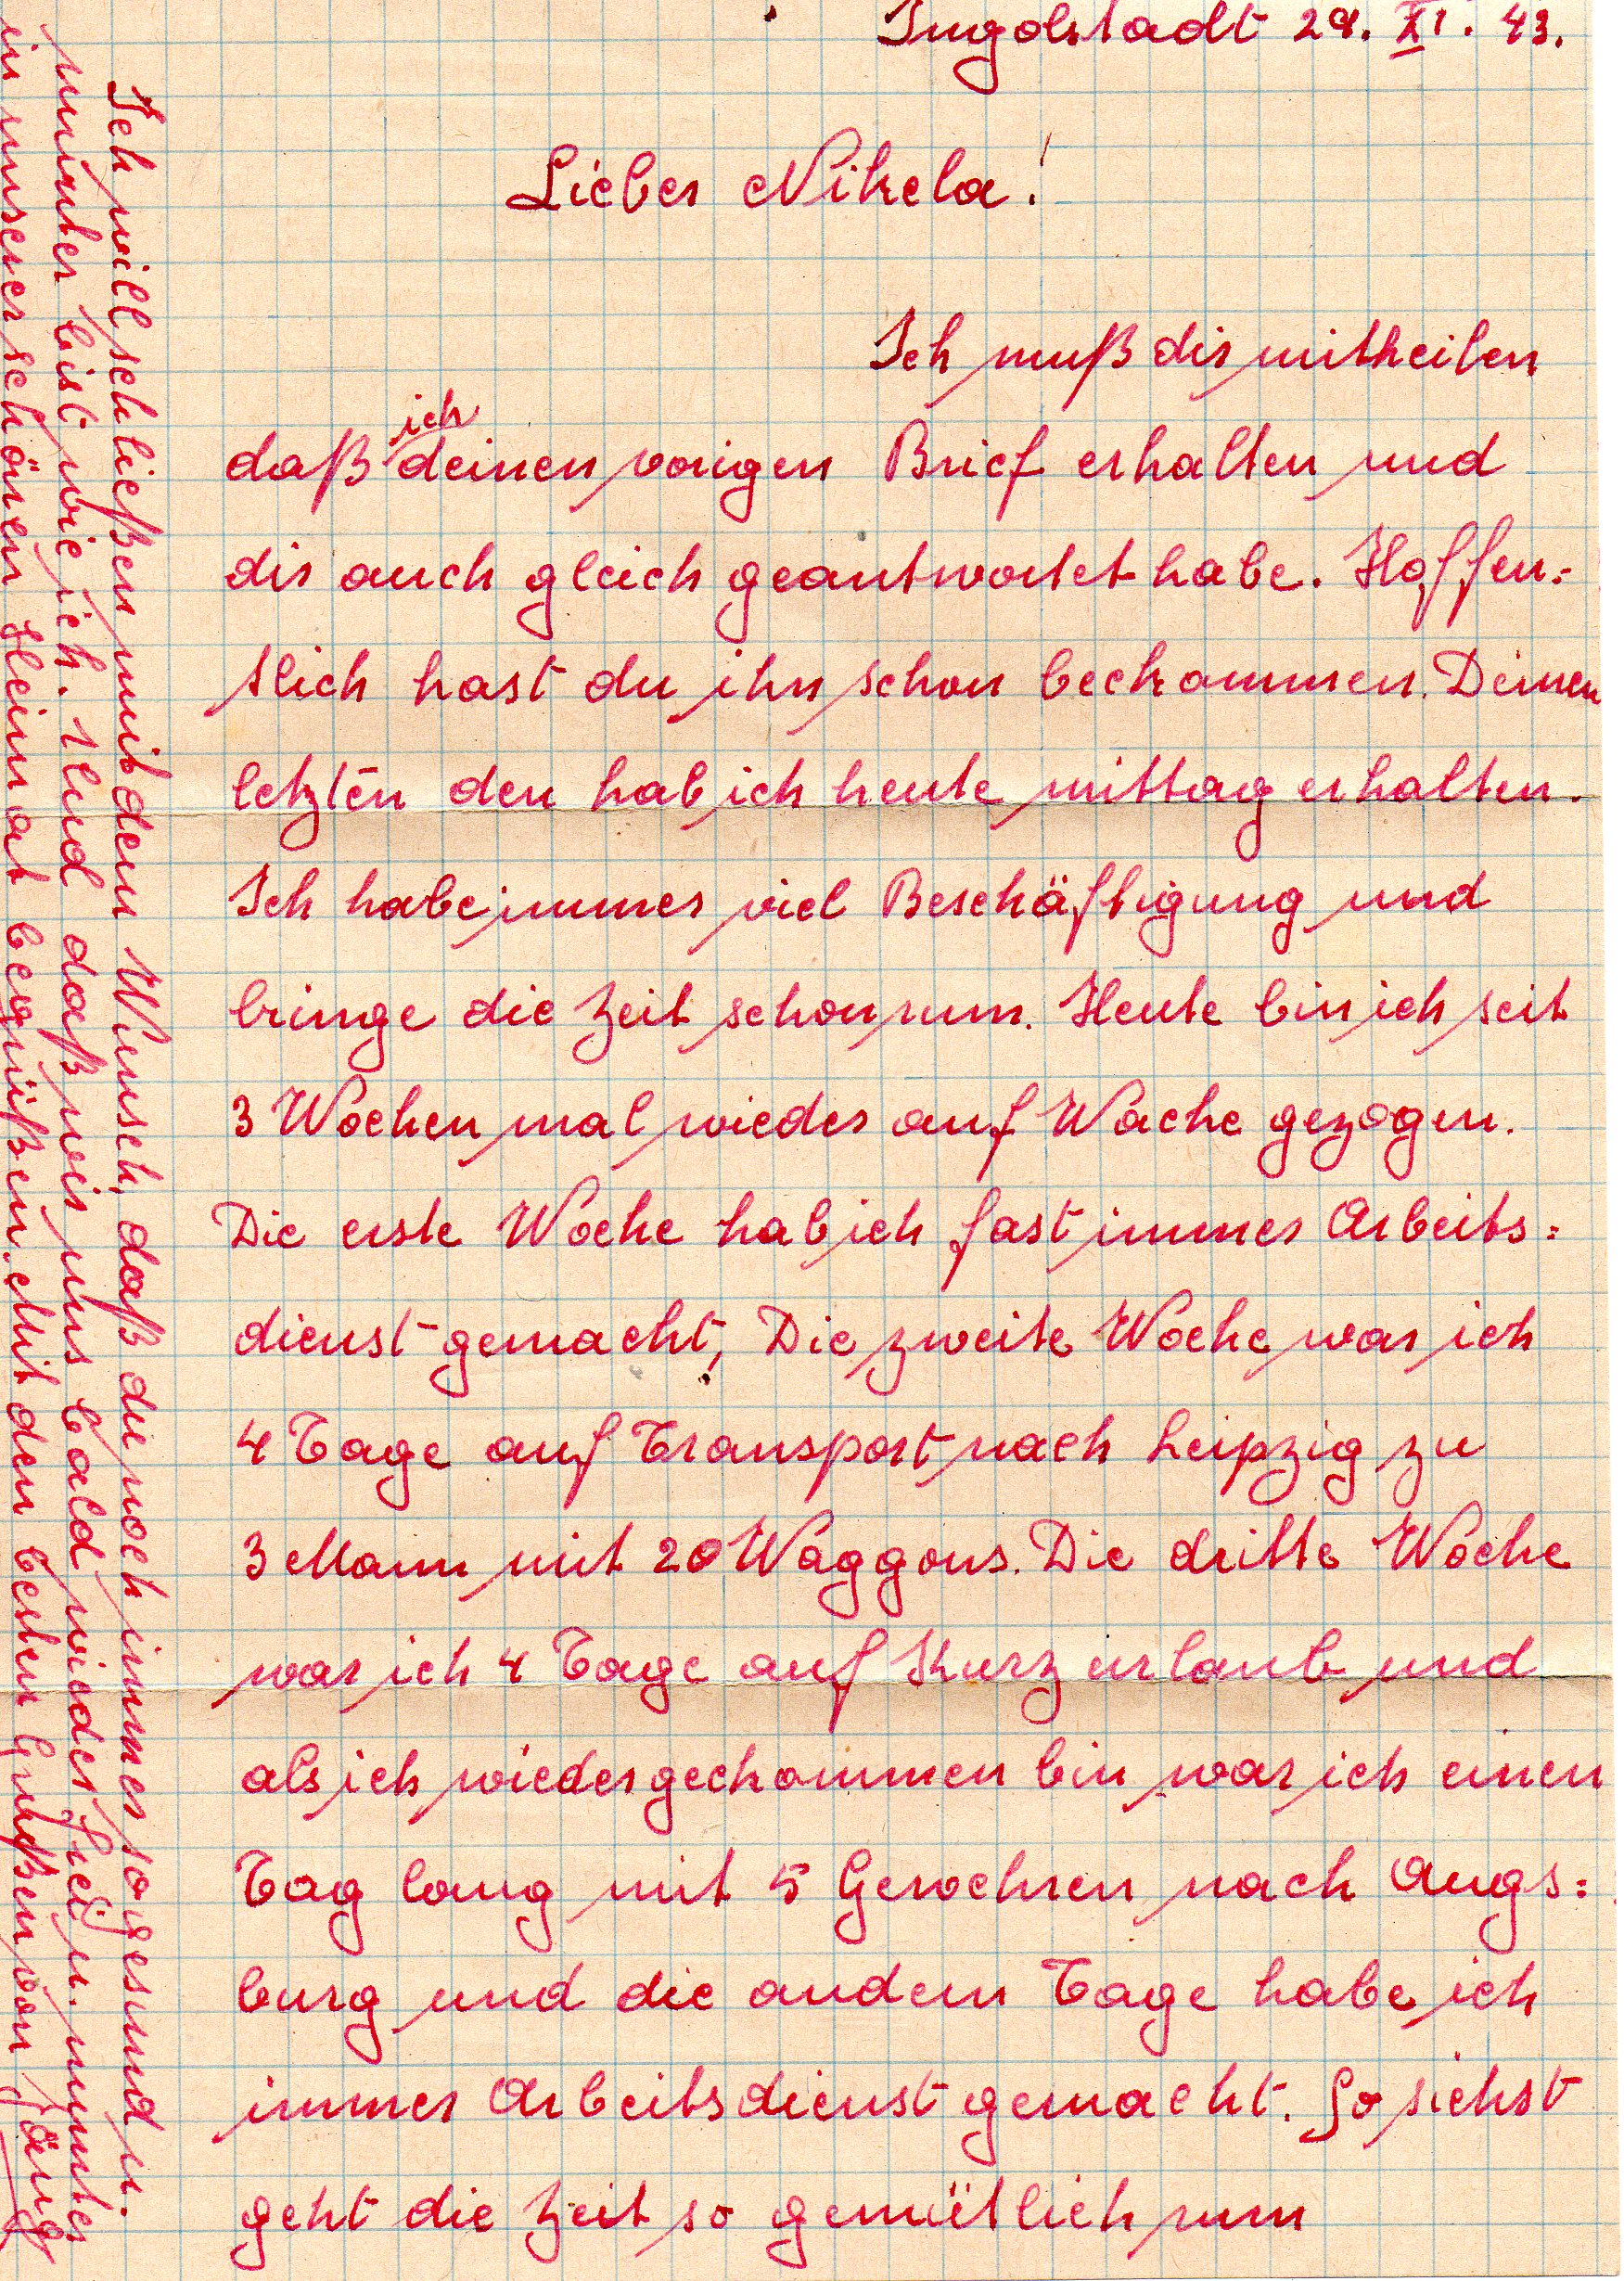 Ingolstadt 29. XI. 43.
Lieber Nikela!
Ich muß dir mittheilen
daß ich deinen vorigen Brief erhalten und
dir auch gleich geantwortet habe. Hoffen:
tlich hast du ihn schon beckommen. Deinen
letzten den hab ich heute mittag erhalten.
Ich habe immer viel Beschäftigung und
bringe die Zeit schon rum. Heute bin ich seit
3 Wochen mal wieder auf Wache gezogen.
Die erste Woche hab ich fast immer Arbeits:
dienst gemacht, Die zweite Woche war ich
4 Tage auf Transport nach Leipzig zu
3 Mann mit 20 Waggons. Die dritte Woche
war ich 4 Tage auf Kurzurlaub und
als ich wiedergeckommen bin war ich einen
Tag lang mit 5 Gewehren nach Augs:
burg und die andern Tage habe ich
immer Arbeitsdienst gemacht. So siehst
geht die Zeit so gemütlich rum
Ich will schließen mit dem Wunsch, daß du noch immer so gesund u.
munter bist wie ich. Und daß wir uns bald wieder frei u. munter
in unserer schönen Heimat begrüßen. Mit den besten Grüßen von